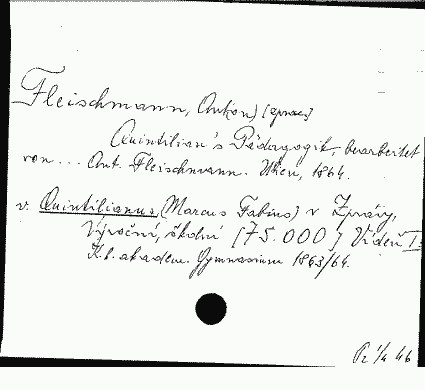 Fleischmann, Ant(on) [zprac.]
Quintilian's Pädagogik, bearbeitet
von ... Ant. Fleischmann. Wien, 1864.
v. Quintilianus (Marcus Fabius) v Zprávy,
Výroční, školní [75.000] Vídeň I:
K. k. akadem. Gymnasium 1863/64.
Pz 1/4 46